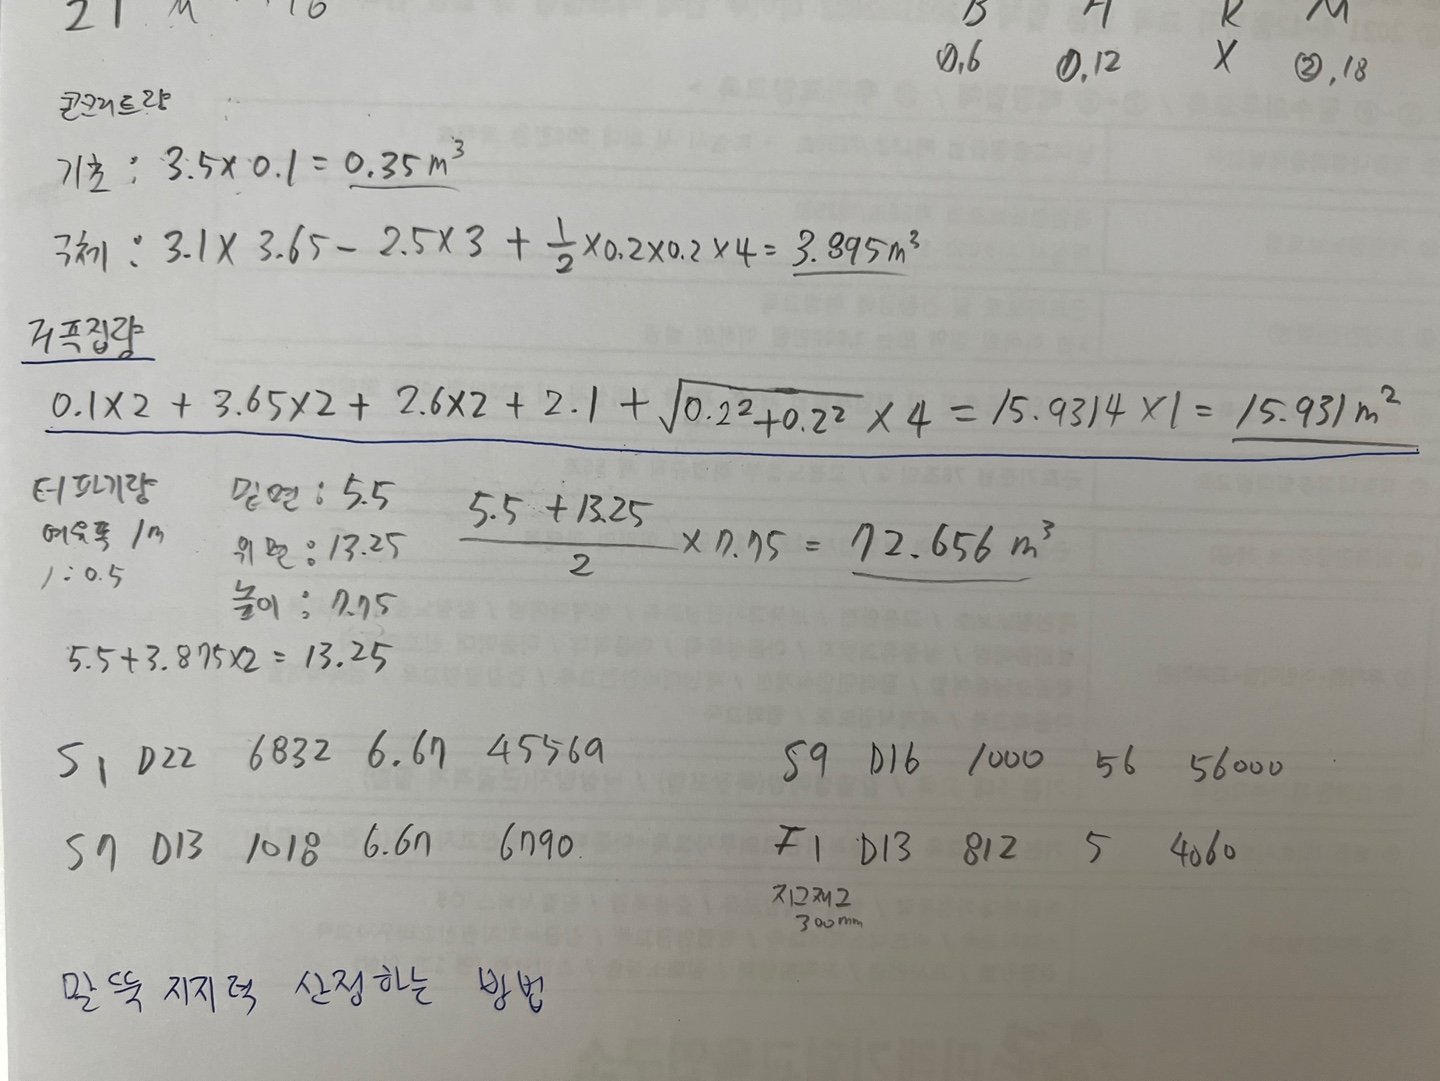 21 M 16
B H K M
①,6 ①,12 X ②,18
콘크리트량
기초 : 3.5 x 0.1 = 0.35 m³
구체 : 3.1 x 3.65 - 2.5 x 3 + 1/2 x 0.2 x 0.2 x 4 = 3.895 m³
거푸집량
0.1 x 2 + 3.65 x 2 + 2.6 x 2 + 2.1 + √(0.2² + 0.2²) x 4 = 15.9314 x 1 = 15.931 m²
터파기량
여유폭 1m
1 : 0.5
밑면 : 5.5
윗면 : 13.25
높이 : 7.75
(5.5 + 13.25)/2 x 7.75 = 72.656 m³
5.5 + 3.875 x 2 = 13.25
S1 D22 6832 6.67 45569
S7 D13 1018 6.67 6790
S9 D16 1000 56 56000
F1 D13 812 5 4060
300mm
말뚝 지지력 산정하는 방법